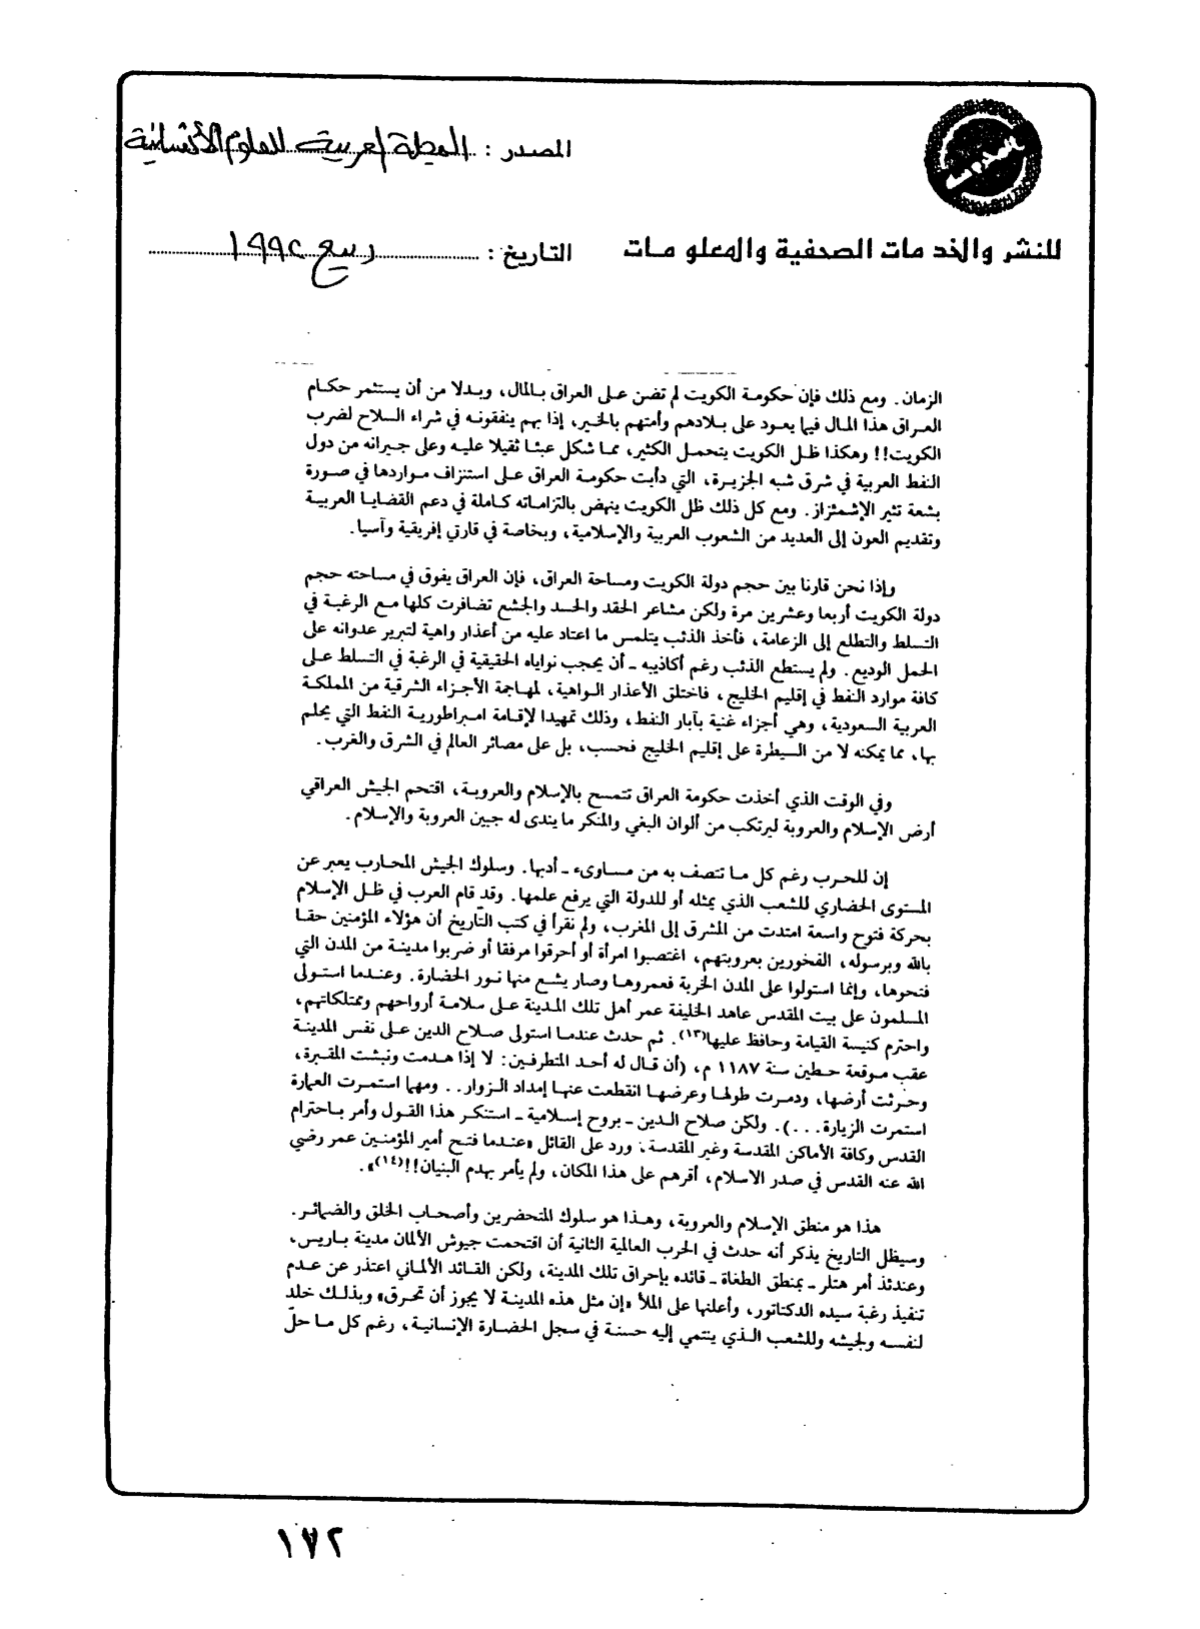 المصدر : المجلة العربية للعلوم الإنسانية
للنشر والخدمات الصحفية والمعلومات
التاريخ : ربيع ١٩٩٢
الزمان. ومع ذلك فإن حكومة الكويت لم تضن على العراق بالمال، وبدلا من أن يستثمر حكام
العراق هذا المال فيما يعود على بلادهم وأمتهم بالخير، إذا بهم ينفقونه في شراء السلاح لضرب
الكويت!! وهكذا ظل الكويت يتحمل الكثير، مما شكل عبئا ثقيلا عليه وعلى جيرانه من دول
النفط العربية في شرق شبه الجزيرة، التي دأبت حكومة العراق على استنزاف مواردها في صورة
بشعة تثير الإشمئزاز. ومع كل ذلك ظل الكويت ينهض بالتزاماته كاملة في دعم القضايا العربية
وتقديم العون إلى العديد من الشعوب العربية والإسلامية، وبخاصة في قارتي إفريقية وآسيا.
وإذا نحن قارنا بين حجم دولة الكويت ومساحة العراق، فإن العراق يفوق في مساحته حجم
دولة الكويت أربعا وعشرين مرة ولكن مشاعر الحقد والحسد والجشع تضافرت كلها مع الرغبة في
التسلط والتطلع إلى الزعامة، فأخذ الذئب يتلمس ما اعتاد عليه من أعذار واهية لتبرير عدوانه على
الحمل الوديع. ولم يستطع الذئب رغم أكاذيبه ـ أن يحجب نواياه الحقيقية في الرغبة في التسلط على
كافة موارد النفط في إقليم الخليج، فاختلق الأعذار الواهية، لمهاجمة الأجزاء الشرقية من المملكة
العربية السعودية، وهي أجزاء غنية بآبار النفط، وذلك تمهيدا لإقامة امبراطورية النفط التي يحلم
بها، مما يمكنه لا من السيطرة على إقليم الخليج فحسب، بل على مصائر العالم في الشرق والغرب.
وفي الوقت الذي أخذت حكومة العراق تتمسح بالإسلام والعروبة، اقتحم الجيش العراقي
أرض الإسلام والعروبة ليرتكب من ألوان البغي والمنكر ما يندى له جبين العروبة والإسلام.
إن للحرب رغم كل ما تتصف به من مساوىء ـ أدبها. وسلوك الجيش المحارب يعبر عن
المستوى الحضاري للشعب الذي يمثله أو للدولة التي يرفع علمها. وقد قام العرب في ظل الإسلام
بحركة فتوح واسعة امتدت من المشرق إلى المغرب، ولم نقرأ في كتب التاريخ أن هؤلاء المؤمنين حقا
بالله وبرسوله، الفخورين بعروبتهم، اغتصبوا امرأة أو أحرقوا مرفقا أو ضربوا مدينة من المدن التي
فتحوها، وإنما استولوا على المدن الخربة فعمروها وصار يشع منها نور الحضارة. وعندما استولى
المسلمون على بيت المقدس عاهد الخليفة عمر أهل تلك المدينة على سلامة أرواحهم وممتلكاتهم،
واحترم كنيسة القيامة وحافظ عليها(١٣). ثم حدث عندما استولى صلاح الدين على نفس المدينة
عقب موقعة حطين سنة ١١٨٧ م، (أن قال له أحد المتطرفين: لا إذا هدمت ونبشت المقبرة،
وحرثت أرضها، ودمرت طولها وعرضها انقطعت عنها إمداد الزوار.. ومهما استمرت العمارة
استمرت الزيارة...). ولكن صلاح الدين ـ بروح إسلامية ـ استنكر هذا القول وأمر باحترام
القدس وكافة الأماكن المقدسة وغير المقدسة، ورد على القائل «عندما فتح أمير المؤمنين عمر رضي
الله عنه القدس في صدر الاسلام، أقرهم على هذا المكان، ولم يأمر بهدم البنيان!!(١٤)».
هذا هو منطق الإسلام والعروبة، وهذا هو سلوك المتحضرين وأصحاب الخلق والضمائر.
وسيظل التاريخ يذكر أنه حدث في الحرب العالمية الثانية أن اقتحمت جيوش الألمان مدينة باريس،
وعندئذ أمر هتلر ـ بمنطق الطغاة ـ قائده بإحراق تلك المدينة، ولكن القائد الألماني اعتذر عن عدم
تنفيذ رغبة سيده الدكتاتور، وأعلنها على الملأ «إن مثل هذه المدينة لا يجوز أن تحرق» وبذلك خلد
لنفسه ولجيشه وللشعب الذي ينتمي إليه حسنة في سجل الحضارة الإنسانية، رغم كل ما حلّ
١٧٢